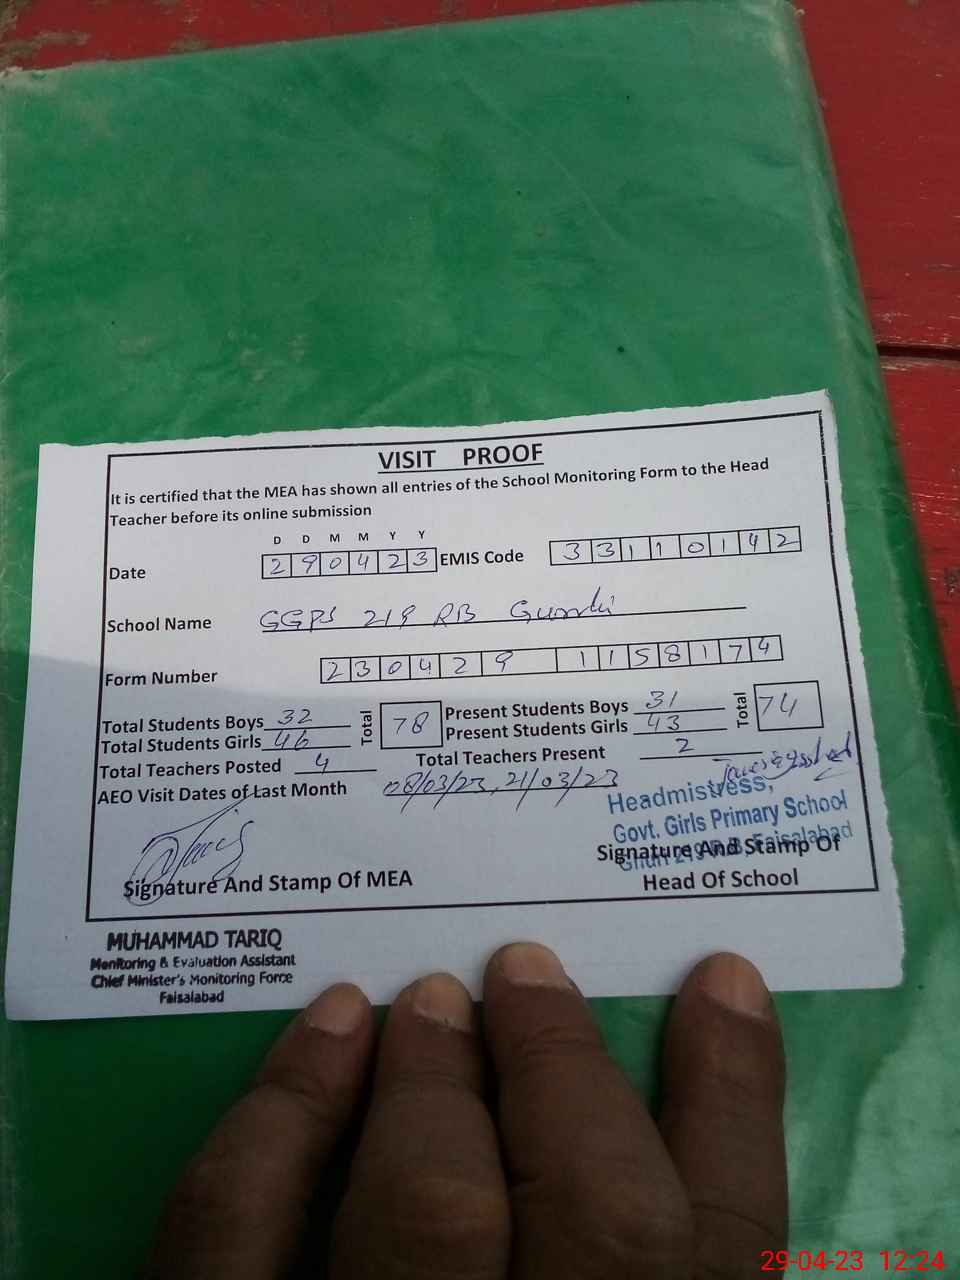 VISIT PROOF
It is certified that the MEA has shown all entries of the School Monitoring Form to the Head
Teacher before its online submission
D D M M Y Y
Date 290423 EMIS Code 33110142
School Name GGPS 219 RB
Form Number 230429 1158174
Total Students Boys 32 Total 78 Present Students Boys 31 Total 74
Total Students Girls 46 Present Students Girls 43
Total Teachers Posted 4 Total Teachers Present 2
AEO Visit Dates of Last Month 08/03/23, 21/03/23
Headmistress,
Govt. Girls Primary School
219 R.B, Faisalabad
Signature And Stamp Of MEA Signature And Stamp Of
Head Of School
MUHAMMAD TARIQ
Monitoring & Evaluation Assistant
Chief Minister's Monitoring Force
Faisalabad
29-04-23 12:24